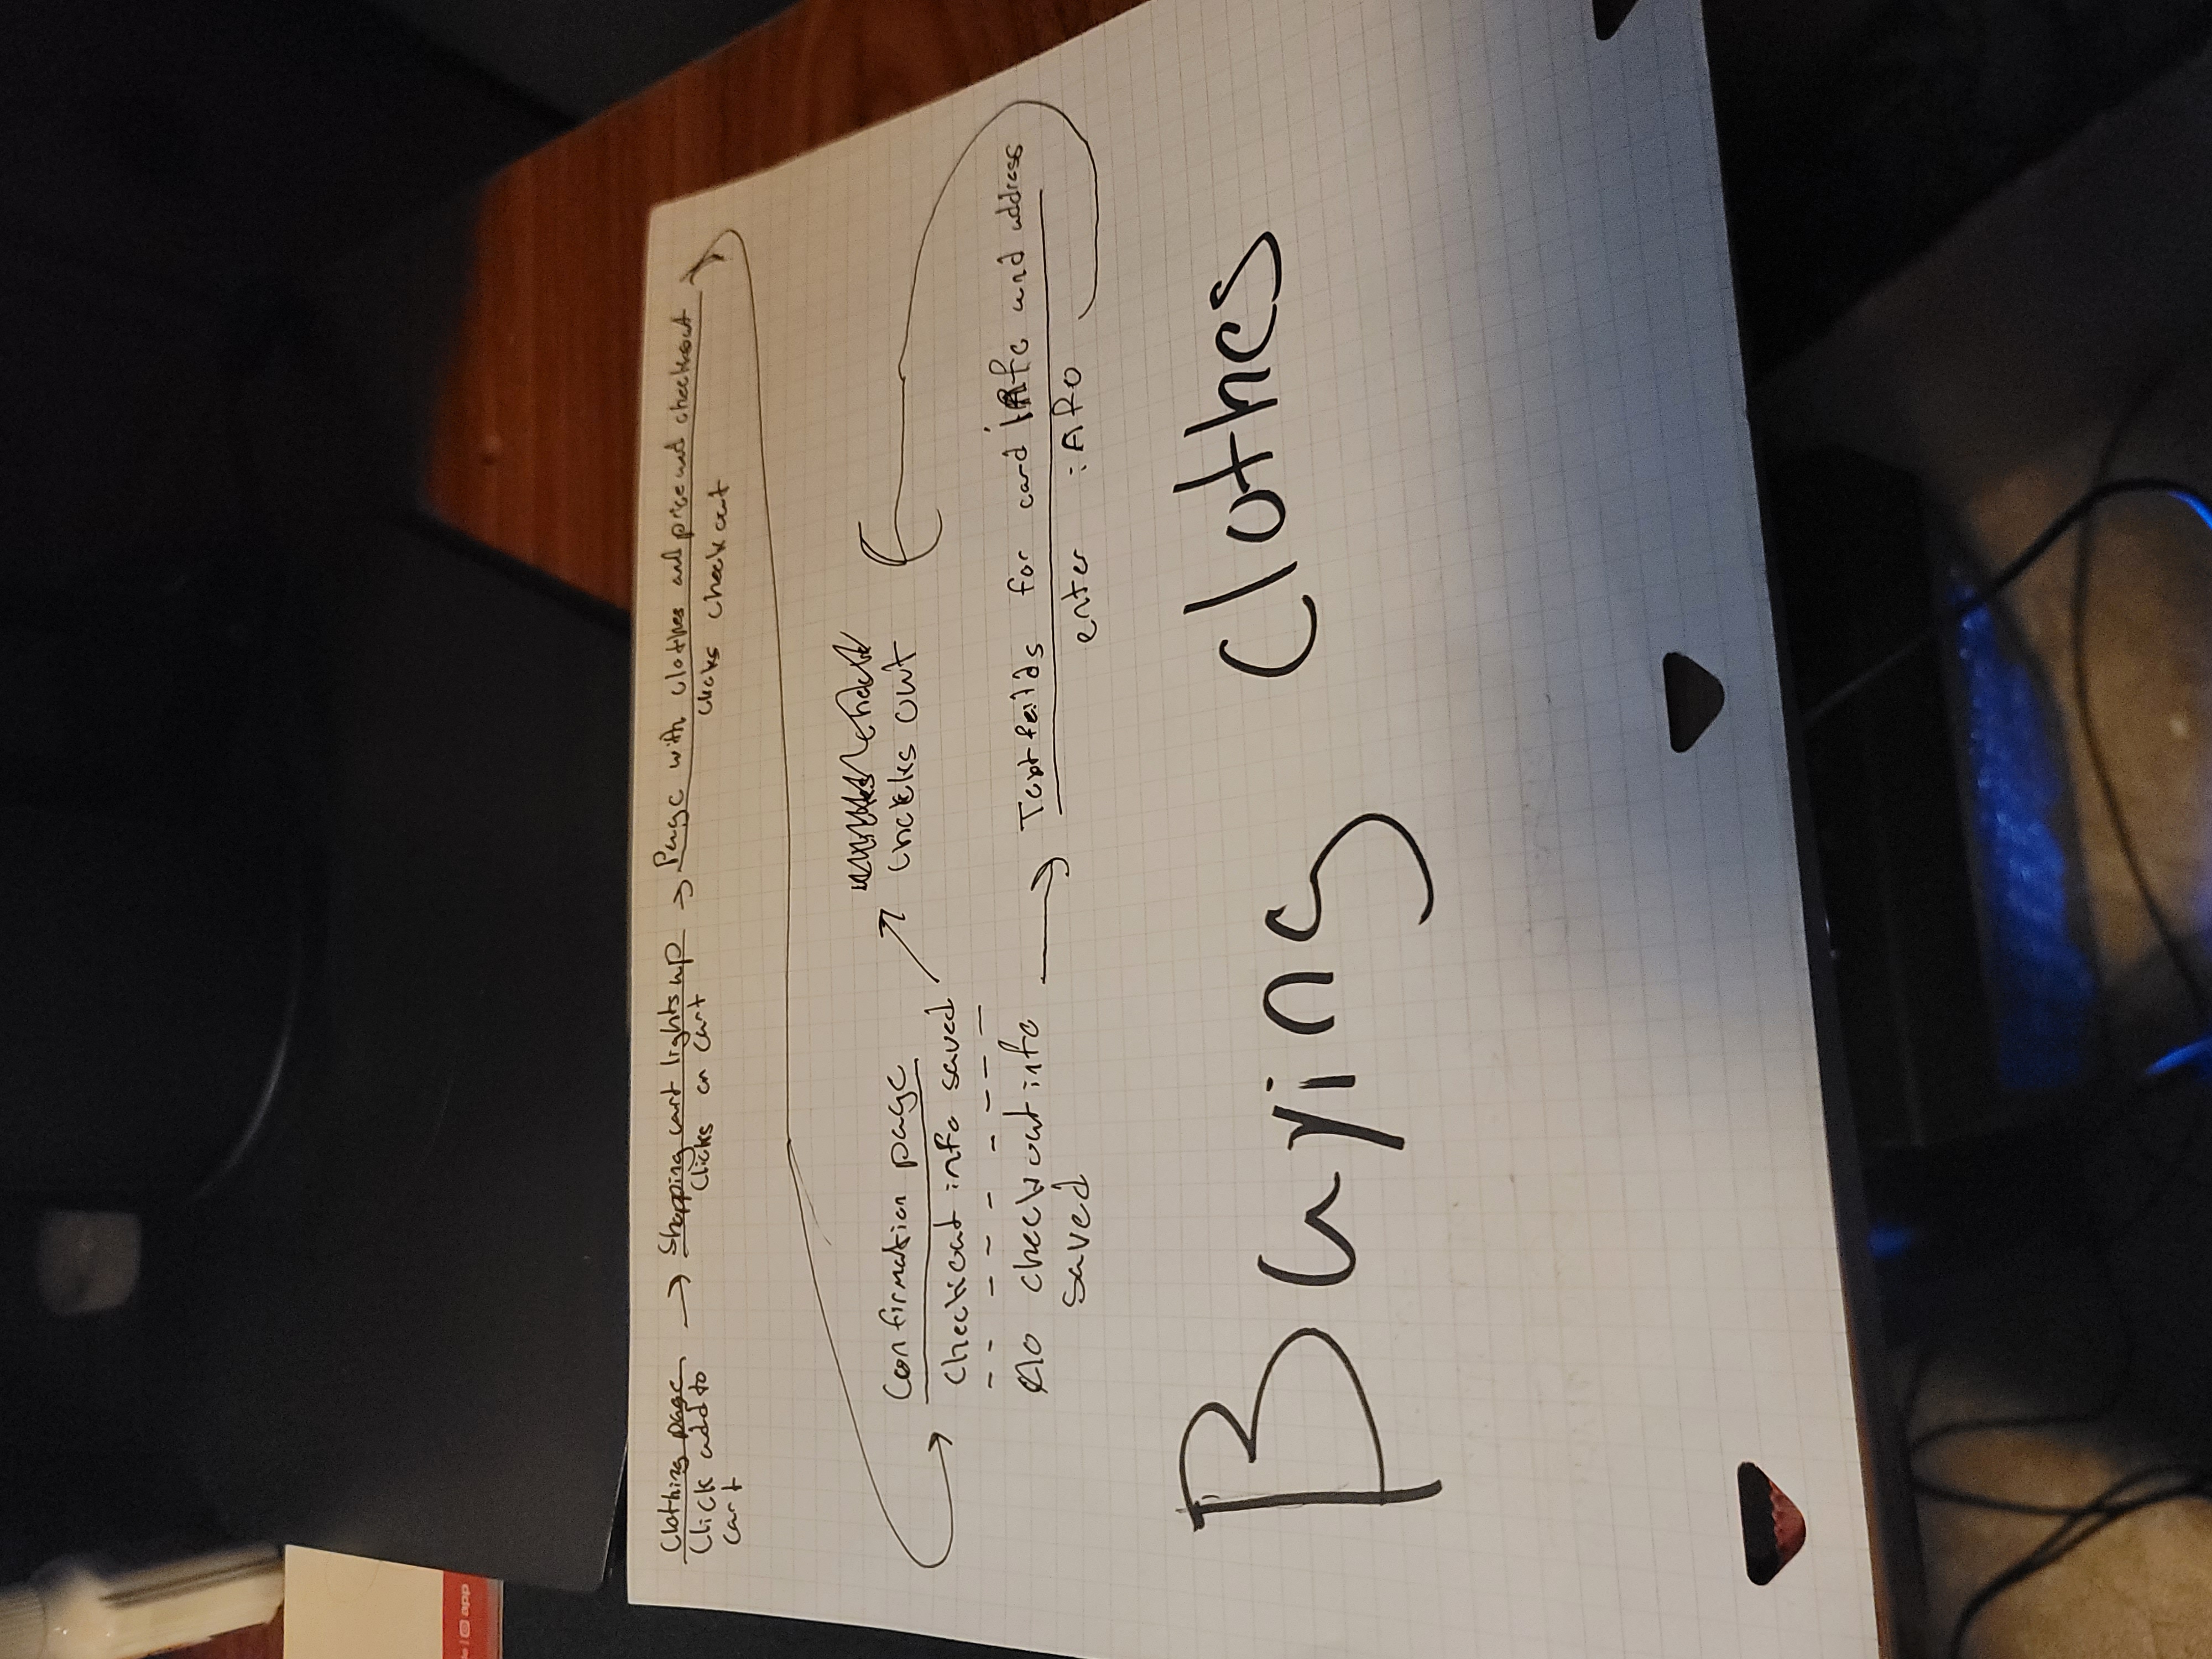 app
Clothing page
Click add to
cart
Shopping cart lights up
Clicks on cart
Page with clothes and price and checkout
clicks checkout
Confirmation page
Checkout info saved
No checkout info
saved
checks out
Text feilds for card info and address
enter info
Buying clothes